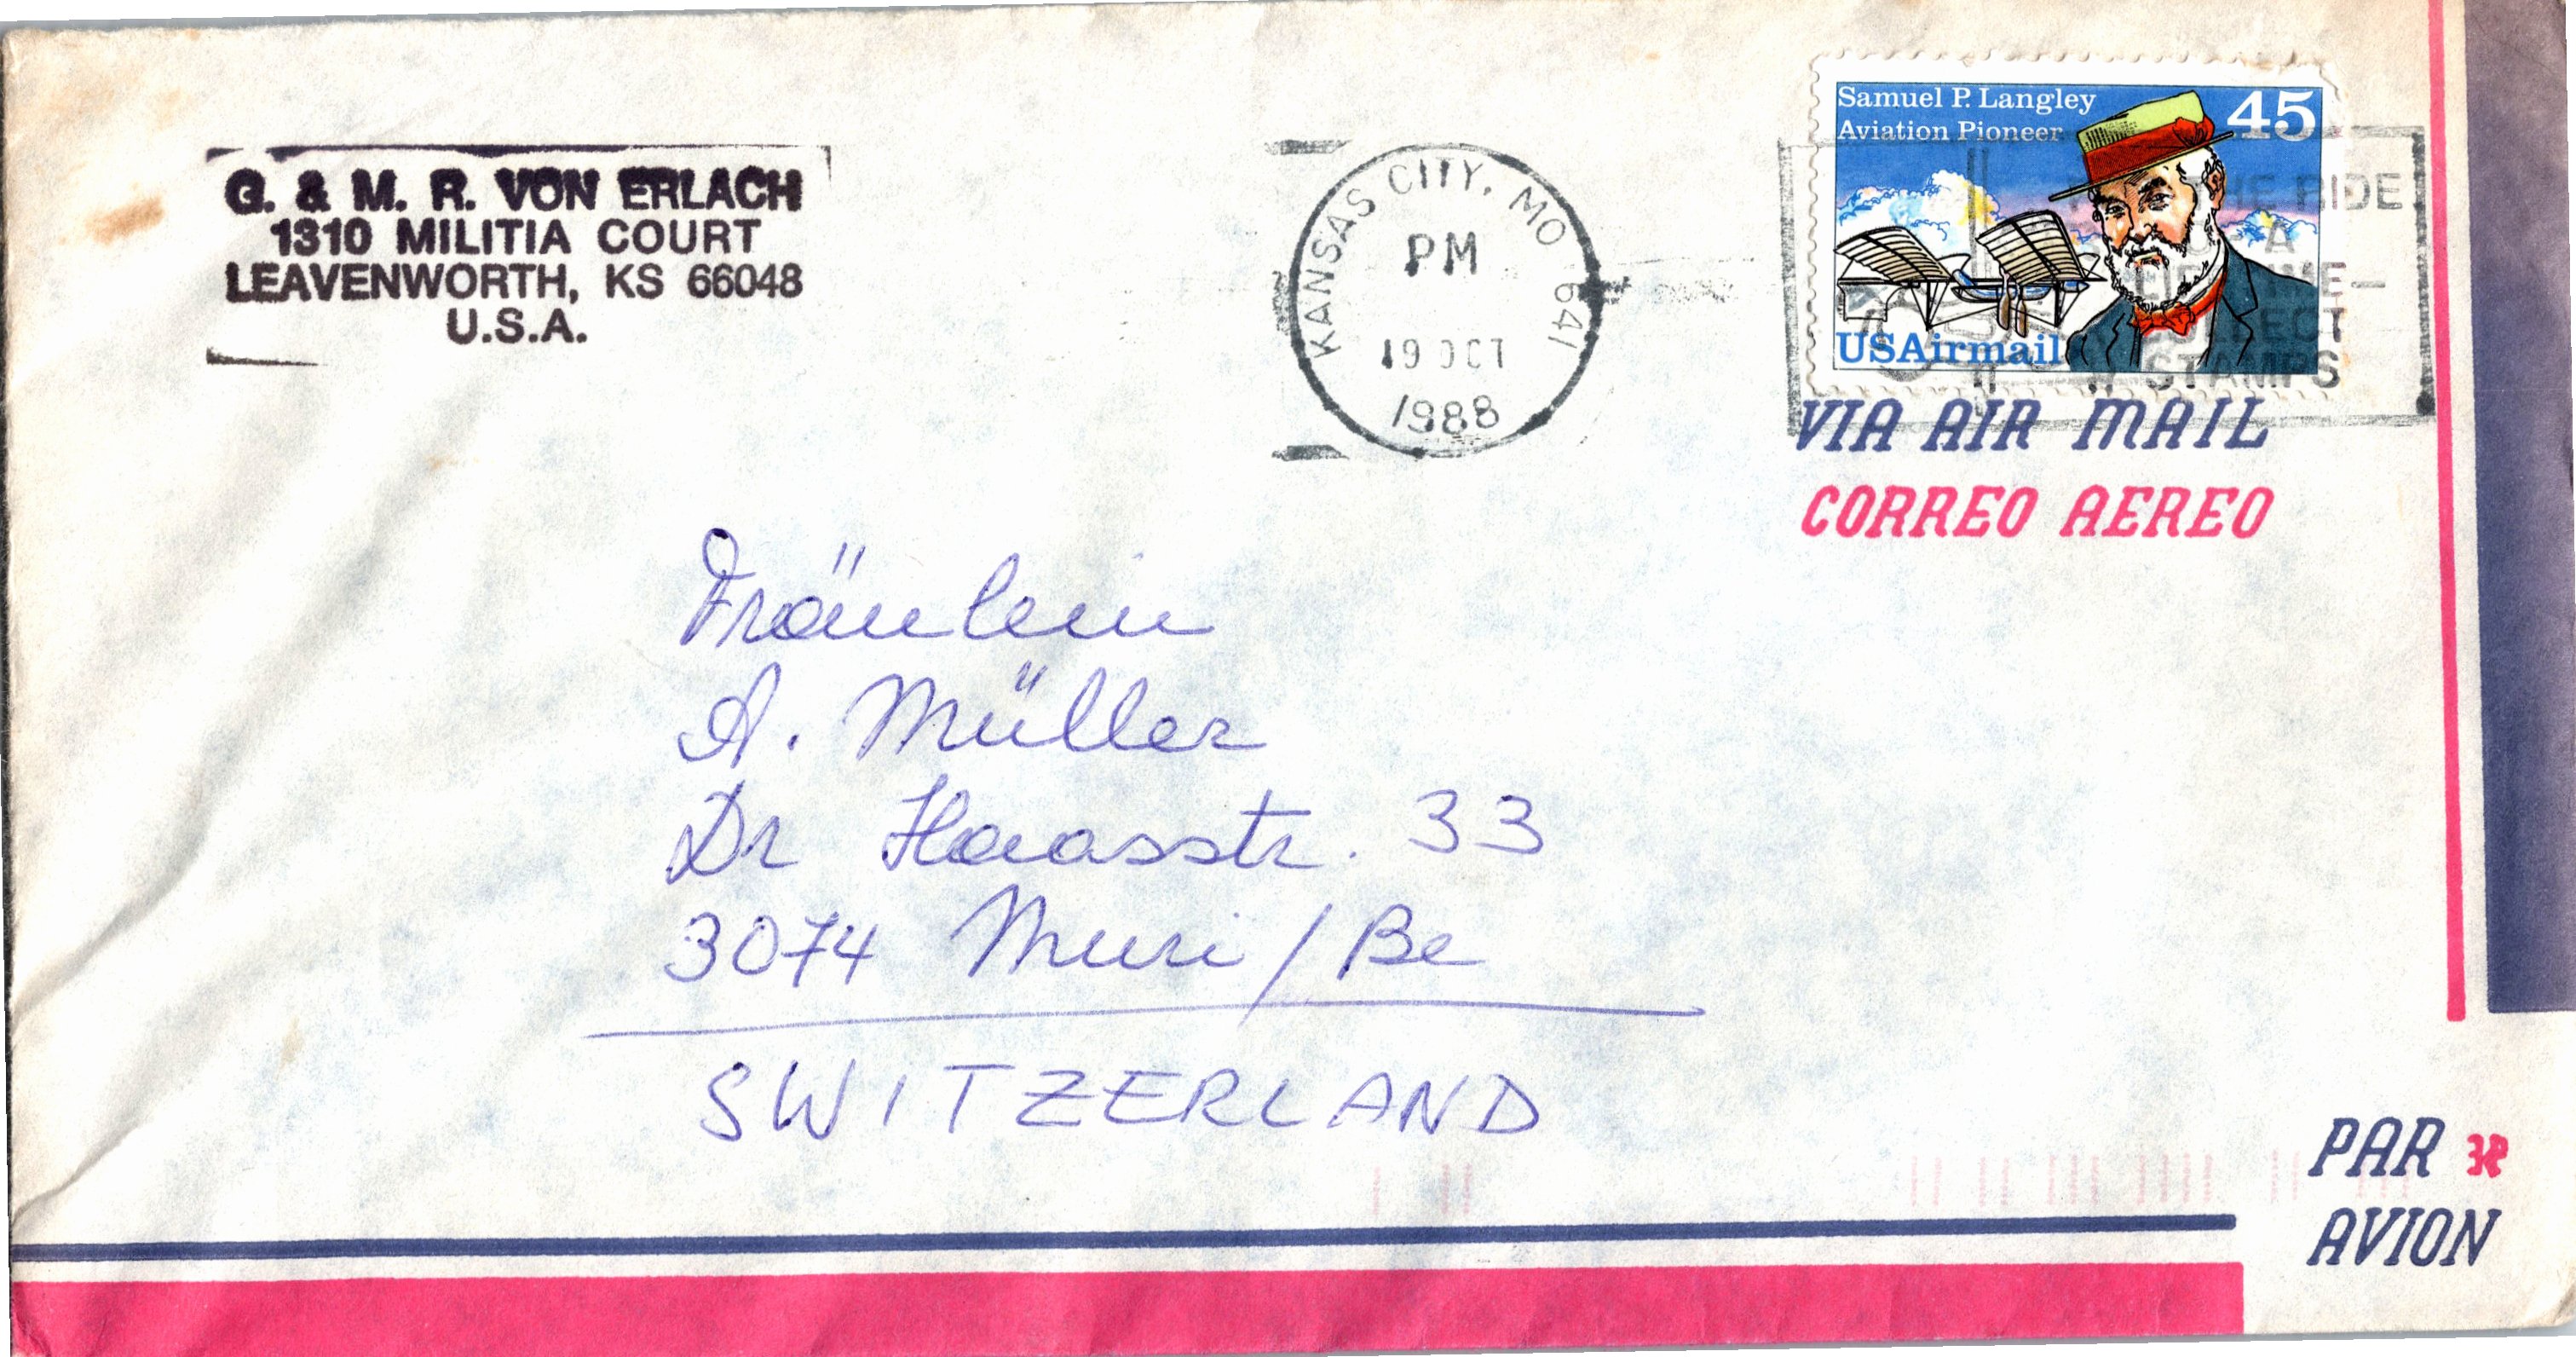 G. & M. R. VON ERLACH
1310 MILITIA COURT
LEAVENWORTH, KS 66048
U.S.A.
KANSAS CITY, MO 641
PM
19 OCT
1988
Samuel P. Langley
Aviation Pioneer
45
USAirmail
RIDE
A
STAMPS
VIA AIR MAIL
CORREO AEREO
Fräulein
A. Müller
Dr Haasstr. 33
3074 Muri / Be
SWITZERLAND
PAR
AVION